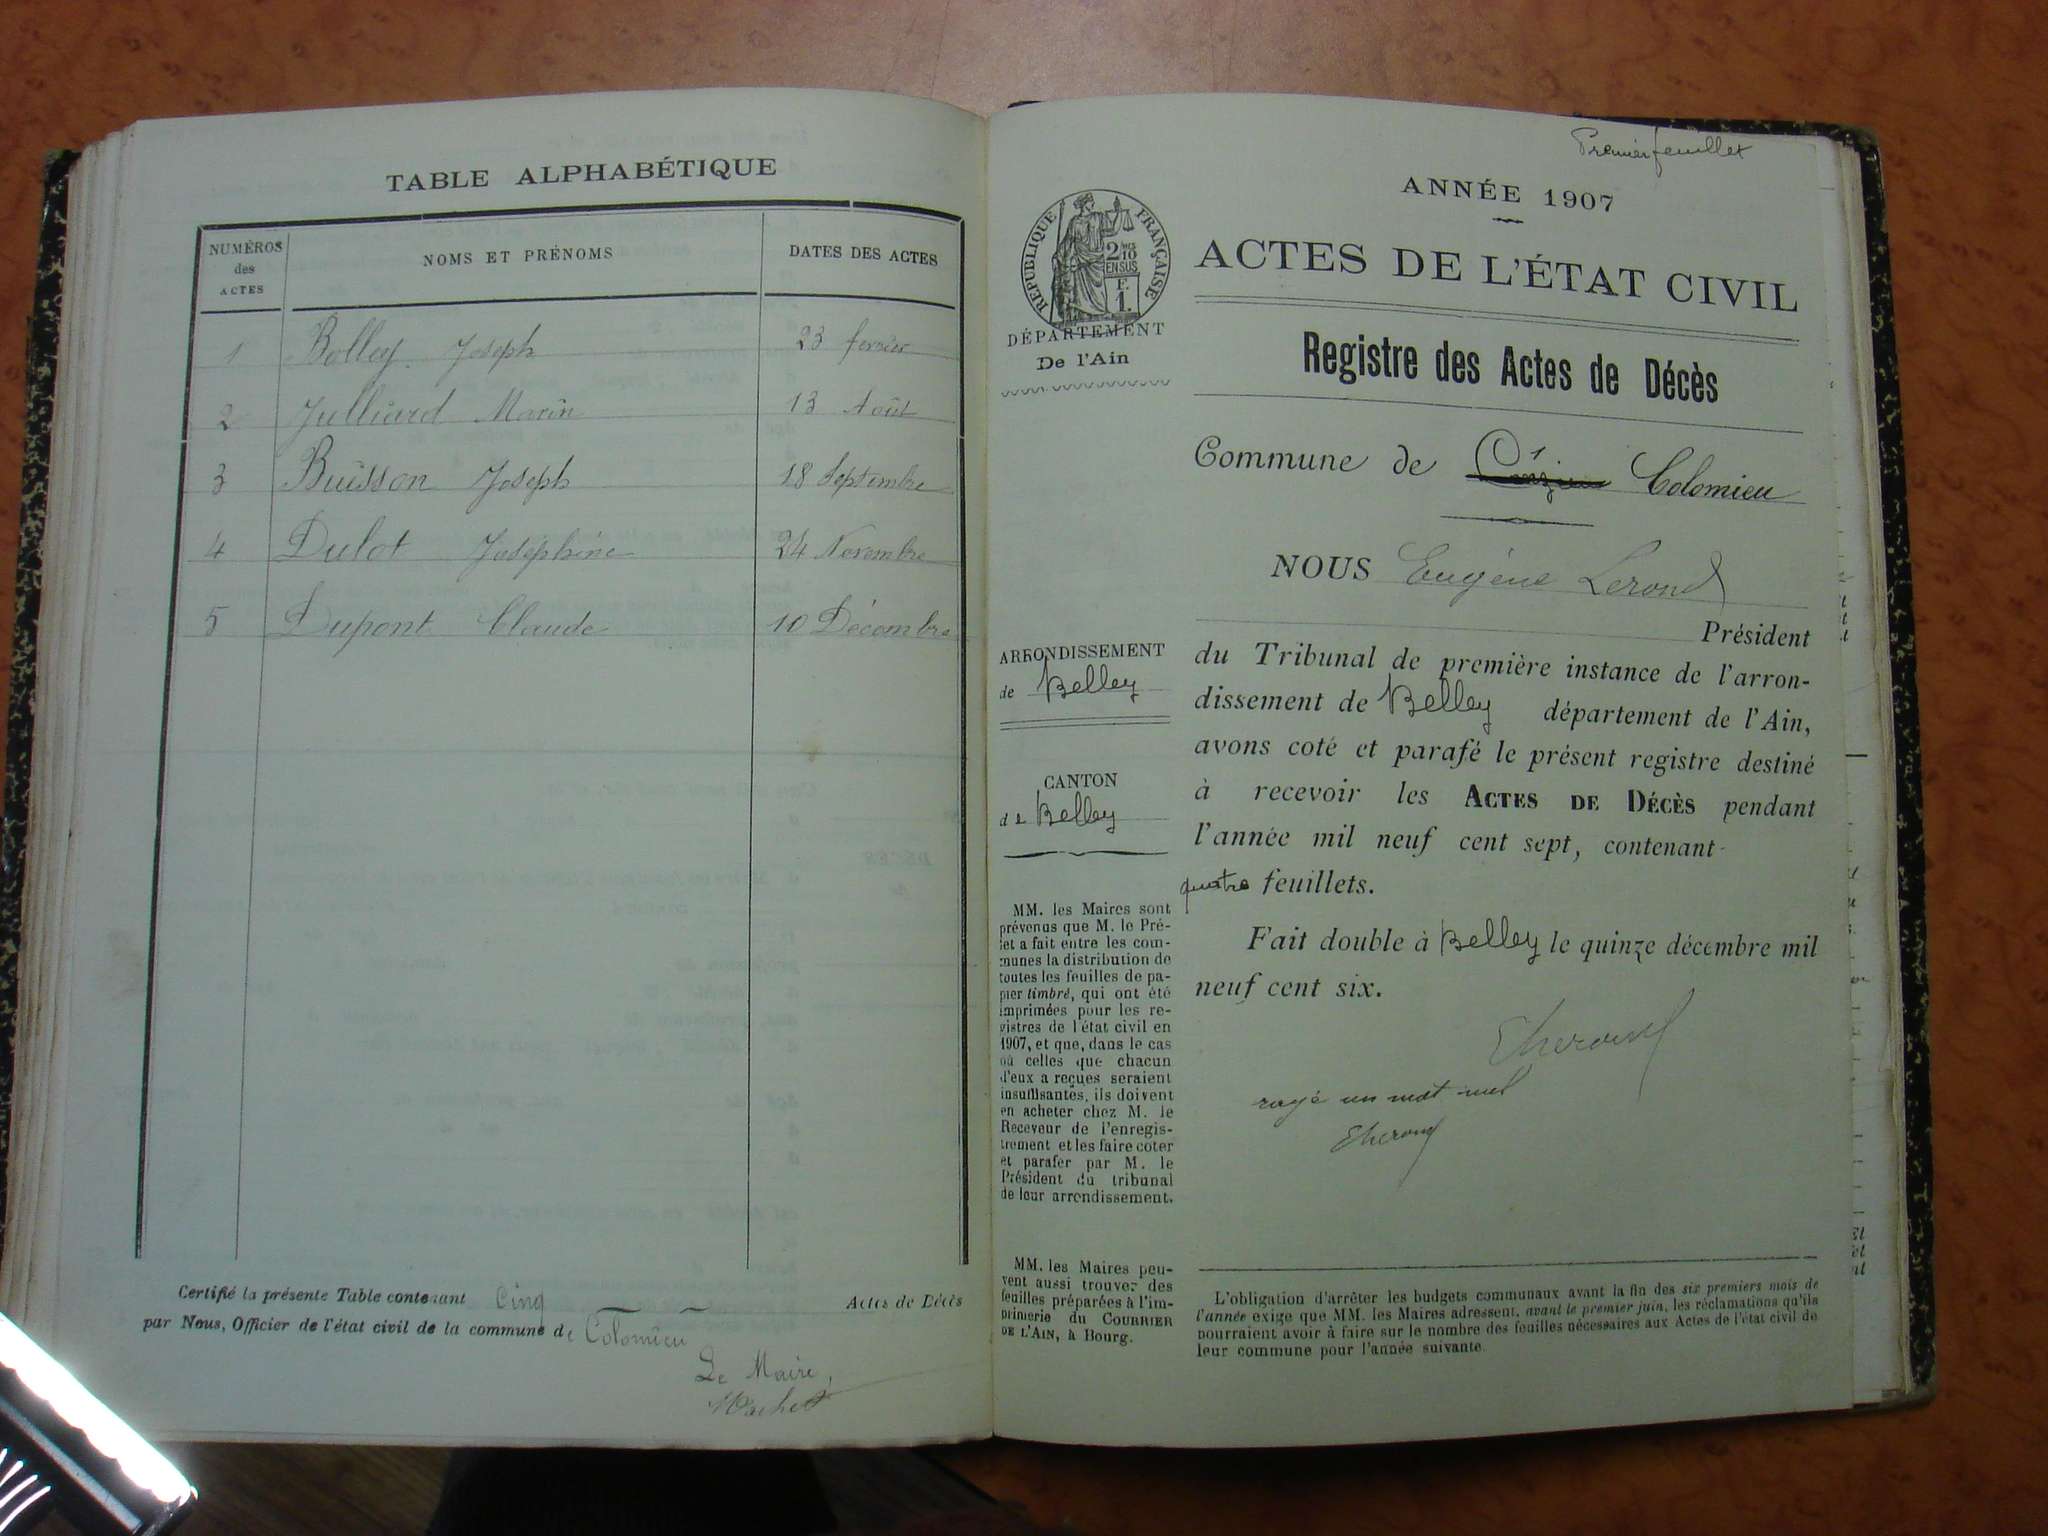 TABLE ALPHABÉTIQUE
NUMÉROS des ACTES NOMS ET PRÉNOMS DATES DES ACTES
1 Bolley Joseph 23 fevrier
2 Julliard Marin 13 Août
3 Buisson Joseph 18 Septembre
4 Dulot Joséphine 24 Novembre
5 Dupont Claude 10 Décembre
Certifié la présente Table contenant Cinq Actes de Décès
par Nous, Officier de l'état civil de la commune de Colomieu
Le Maire,
Premier feuillet
ANNÉE 1907
ACTES DE L'ÉTAT CIVIL
RÉPUBLIQUE FRANÇAISE
2/10
EN SUS
F.
1.
DÉPARTEMENT
De l'Ain
Registre des Actes de Décès
Commune de Colomieu
NOUS Eugène Lerond
Président
du Tribunal de première instance de l'arron-
dissement de Belley département de l'Ain,
avons coté et parafé le présent registre destiné
à recevoir les ACTES DE DÉCÈS pendant
l'année mil neuf cent sept, contenant
quatre feuillets.
Fait double à Belley le quinze décembre mil
neuf cent six.
ELerond
rayé un mot nul
ELerond
ARRONDISSEMENT
de Belley
CANTON
de Belley
MM. les Maires sont
prévenus que M. le Pré-
fet a fait entre les com-
munes la distribution de
toutes les feuilles de pa-
pier timbré, qui ont été
imprimées pour les re-
gistres de l'état civil en
1907, et que, dans le cas
où celles que chacun
d'eux a reçues seraient
insuffisantes, ils doivent
en acheter chez M. le
Receveur de l'enregis-
trement et les faire coter
et parafer par M. le
Président du tribunal
de leur arrondissement.
MM. les Maires peu-
vent aussi trouver des
feuilles préparées à l'im-
primerie du COURRIER
DE L'AIN, à Bourg.
L'obligation d'arrêter les budgets communaux avant la fin des six premiers mois de
l'année exige que MM. les Maires adressent, avant le premier juin, les réclamations qu'ils
pourraient avoir à faire sur le nombre des feuilles nécessaires aux Actes de l'état civil de
leur commune pour l'année suivante.